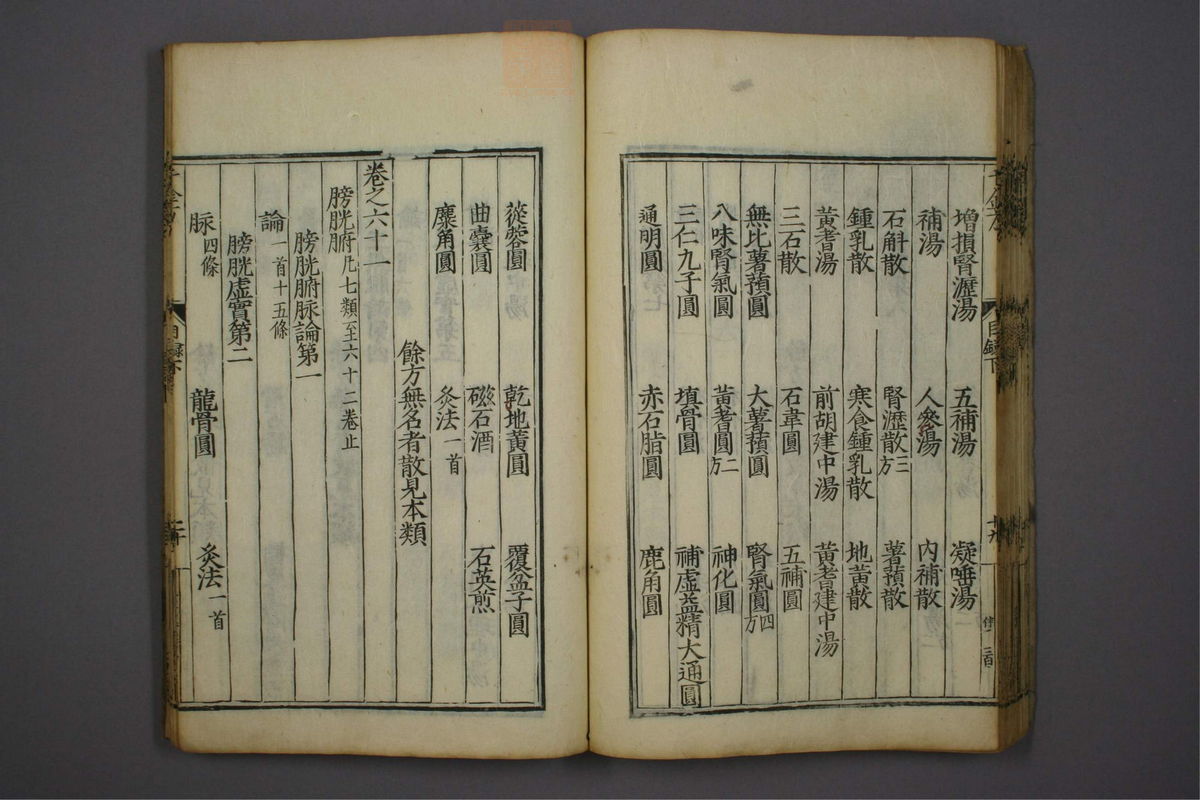 增損腎瀝湯 五補湯 凝唾湯
補湯 人參湯 內補散
石斛散 腎瀝散三方 薯蕷散
鍾乳散 寒食鍾乳散 地黃散
黃耆湯 前胡建中湯 黃耆建中湯
三石散 石韋圓 五補圓
無比薯蕷圓 大薯蕷圓 腎氣圓四方
八味腎氣圓 黃耆圓二方 神化圓
三仁九子圓 填骨圓 補虛益精大通圓
通明圓 赤石脂圓 鹿角圓
目錄下
蓯蓉圓 乾地黃圓 覆盆子圓
曲囊圓 磁石酒 石英煎
麋角圓 灸法一首
餘方無名者散見本類
卷之六十一
膀胱腑凡七類至六十二卷止
膀胱腑脉論第一
論一首十五條
膀胱虛實第二
脉四條 龍骨圓 灸法一首
目錄下